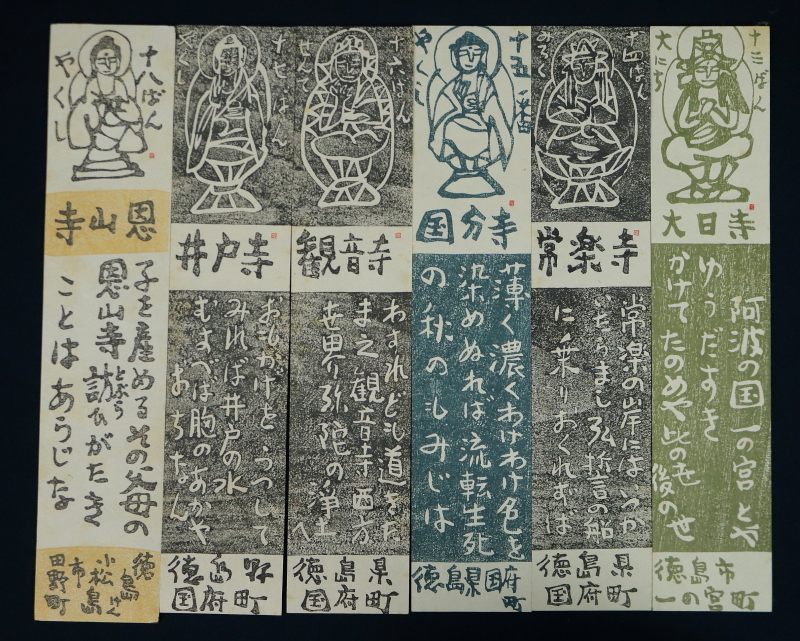 十三ばん
大にち
大日寺
阿波の国一の宮とや
ゆうだすき
かけてたのめや此の世
後のせ
徳島市
一の宮町
十四ばん
みろく
常楽寺
常楽の岸にはいつか
いたらまし弘誓の船
に乗りおくれずば
徳島県
国府町
十五番
やくし
国分寺
薄く濃くわけわけ色を
染めぬれば流転生死
の秋のもみじは
徳島県国府
町
十六ばん
せんて
観音寺
わすれども道きた
まえ観音寺西方
世界弥陀の浄土
へ
徳島県
国府町
十七ばん
やくし
井戸寺
おもかげをうつして
みれば井戸の水
むすべば胸のあかや
おちなん
徳島県
国府町
十八ばん
やくし
恩山寺
子を産めるその父母の
恩山寺訪ひがたき
とぶら
ことはあらじな
徳島けん
小松島
市
田野町